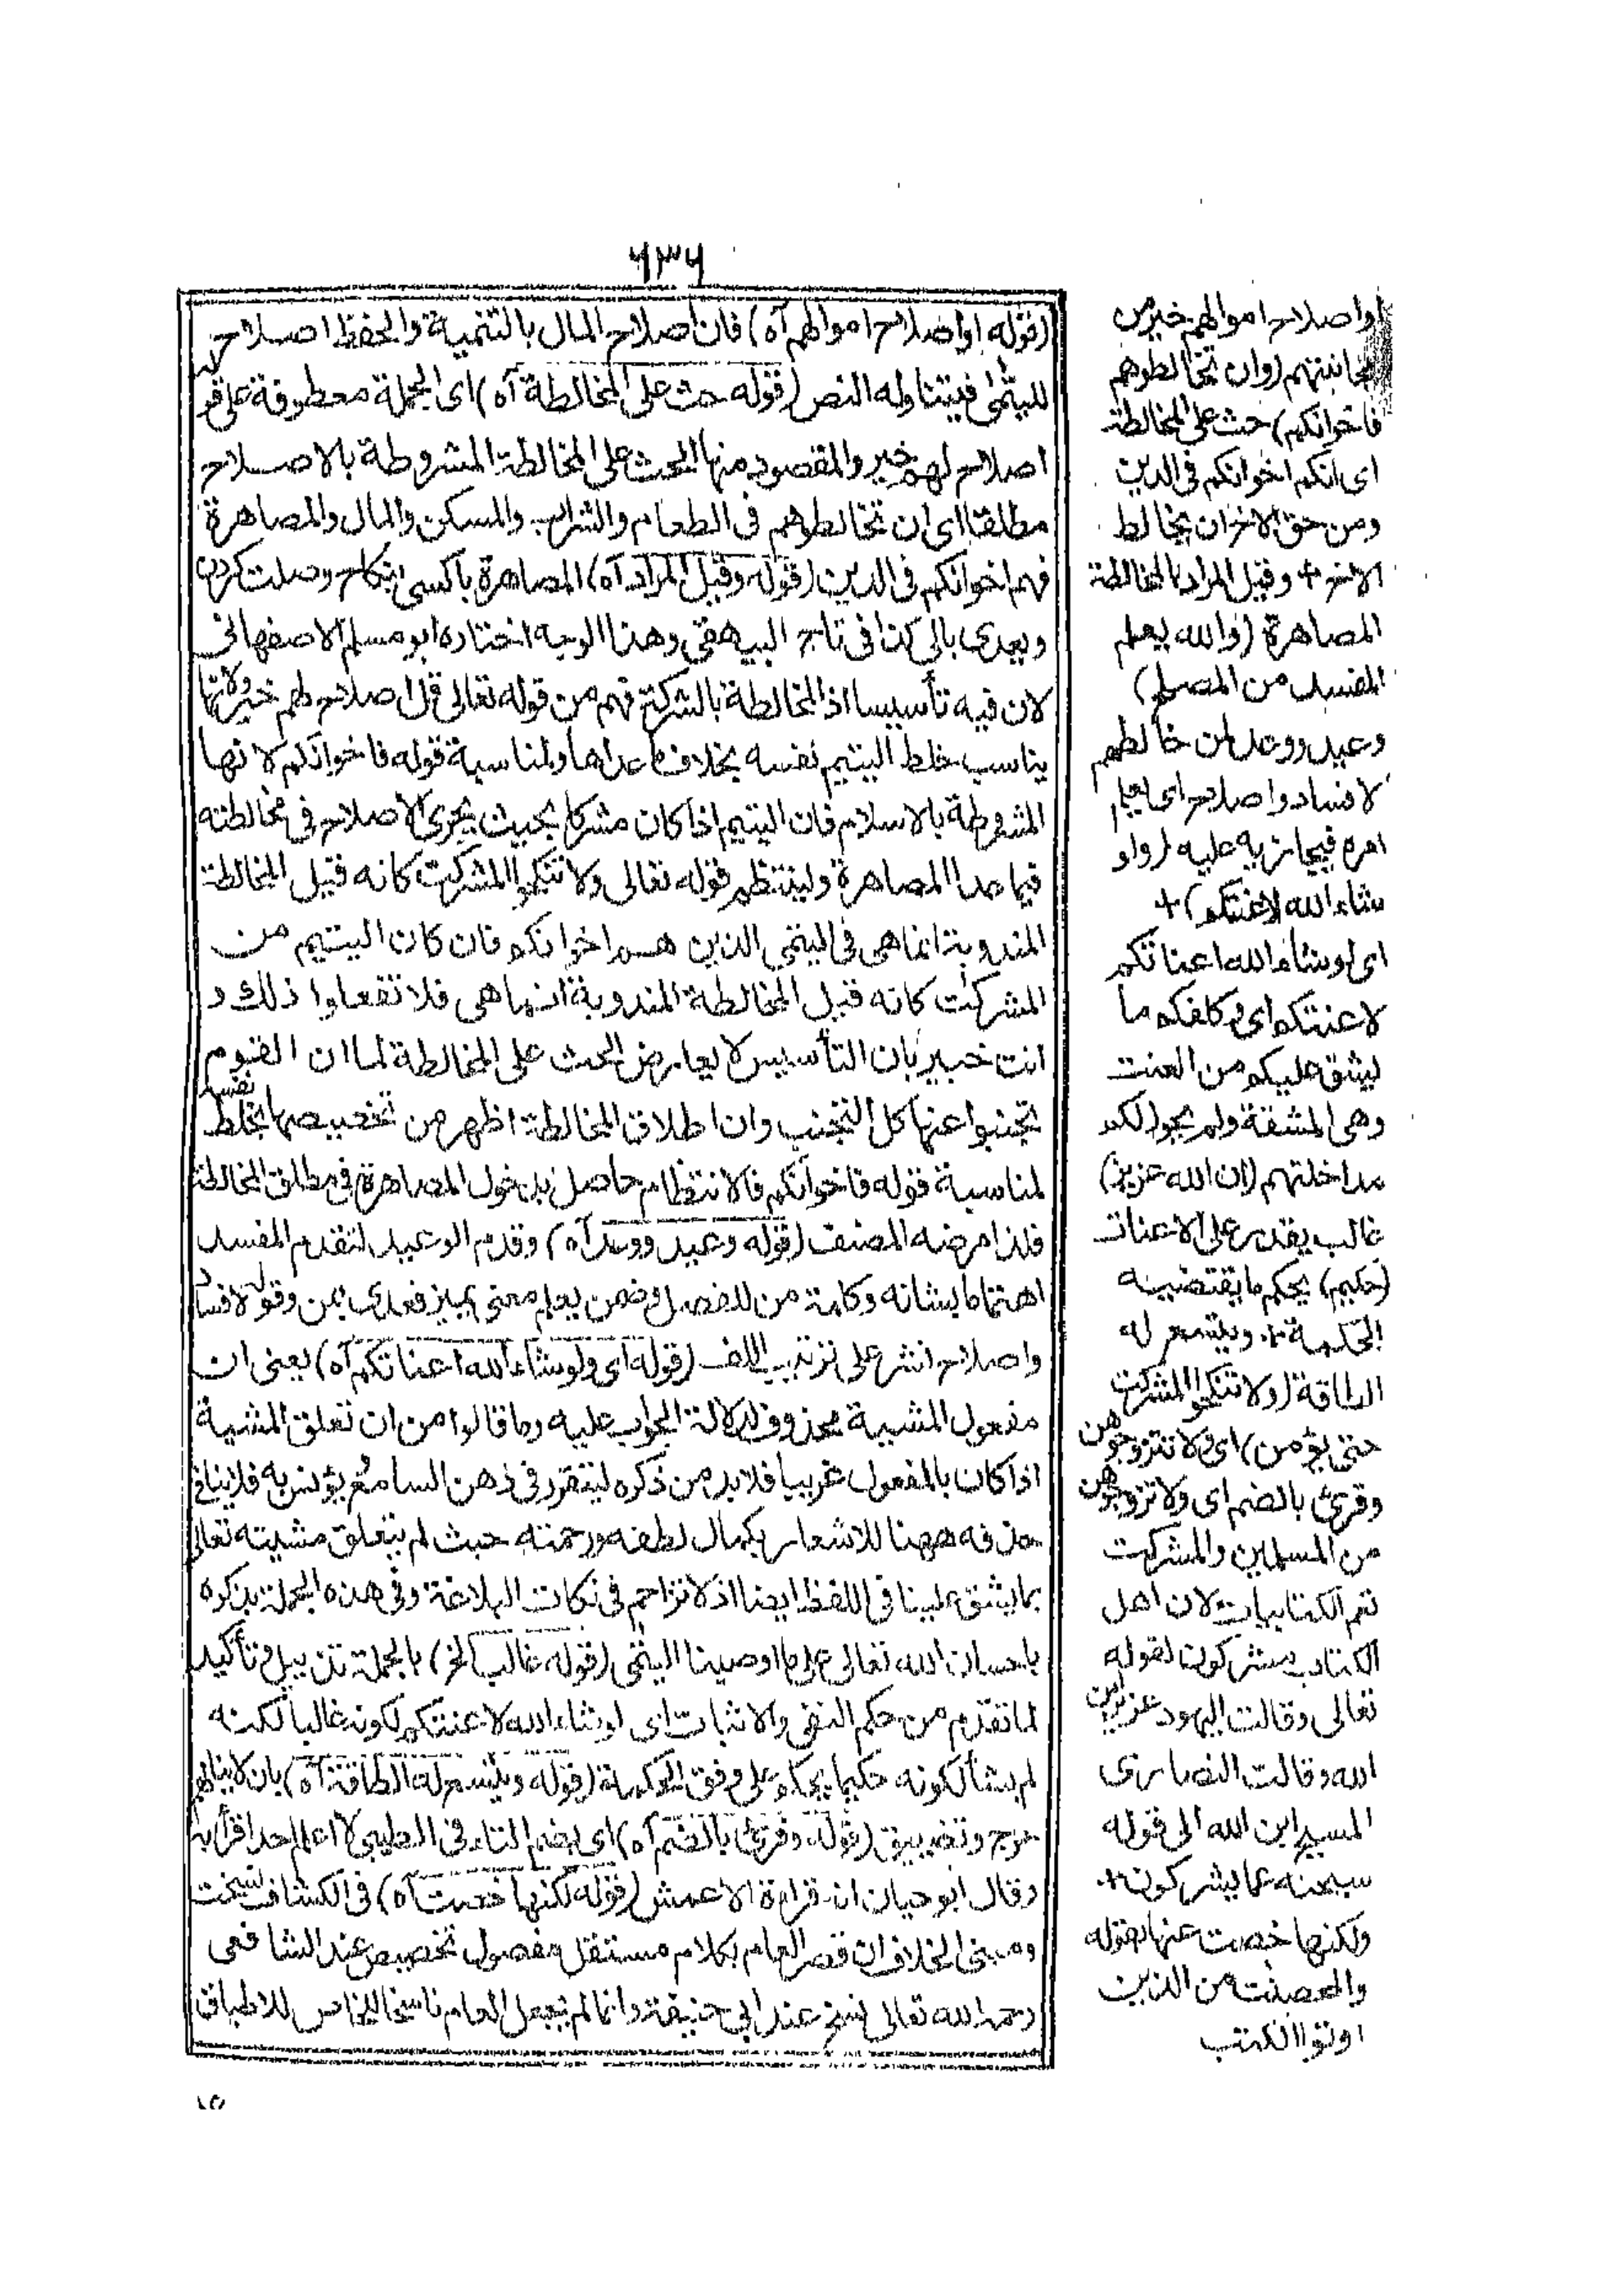 ٦٣٦
(قوله او اصلاح اموالهم آه) فان اصلاح المال بالتنمية والحفظ اصلاح
لليتمى فيتناوله النص (قوله حث على المخالطة آه) اى الجملة معطوفة على قل
اصلاح لهم خير والمقصود منها الحث على المخالطة المشروطة بالاصلاح
مطلقا اى ان تخالطوهم فى الطعام والشراب والمسكن والمال والمصاهرة
فهم اخوانكم فى الدين (قوله وقيل المراد آه) المصاهرة باكسى بنكاح وصلت كردن
ويعدى بالى كذا فى تاج البيهقى وهذا الوجه اختاره ابو مسلم الاصفهانى
لان فيه تأسيسا اذ المخالطة بالشركة فهم من قوله تعالى قل اصلاح لهم خير ولانها
يناسب خلط اليتيم نفسه بخلاف ما عداها ولمناسبة قوله فاخوانكم لانها
المشروطة بالاسلام فان اليتيم اذا كان مشركا بحيث يجرى الاصلاح فى مخالطته
فيما عدا المصاهرة ولينتظم قوله تعالى ولا تنكحوا المشركت كانه قيل المخالطة
المندوبة انما هى فى اليتمى الذين هم اخوانكم فان كان اليتيم من
المشركت كانه قيل المخالطة المندوبة انما هى فلا تفعلوا ذلك و
انت خبير بان التأسيس لا يعارض الحث على المخالطة لما ان القوم
تجنبوا عنها كل التجنب وان اطلاق المخالطة اظهر من تخصيصها بخلط نفسه
لمناسبة قوله فاخوانكم فالانتظام حاصل بدخول المصاهرة فى مطلق المخالطة
فلذا مرضه المصنف (قوله وعيد ووعد آه) وقدم الوعيد لتقدم المفسد
اهتماما بشانه وكلمة من للفصل وضمن يعلم معنى يميز فعدى بمن وقوله لافساد
واصلاح نشر على ترتيب اللف (قوله اى ولو شاء الله اعناتكم آه) يعنى ان
مفعول المشية محذوف لدلالة الجواب عليه وما قالوا من ان تعلق المشية
اذا كان بالمفعول غريبا فلا بد من ذكره ليتقرر فى ذهن السامع ويؤنس به فلا ينافى
حذفه ههنا للاشعار بكمال لطفه ورحمته حيث لم يتعلق مشيته تعالى
بما يشق علينا فى اللفظ ايضا اذ لا تزاحم فى نكات البلاغة وفى هذه الجملة تذكره
باحسان الله تعالى على ما اوصينا اليتمى (قوله غالب الخ) بالجملة تذييل وتأكيد
لما تقدم من حكم النفى والاثبات اى لو شاء الله لاعنتكم لكونه غالبا لكنه
لم يشأ لكونه حكيما يحكم على وفق الحكمة (قوله ويتسع له الطاقة آه) بان لا
حرج وتضييق (قوله وقرئ بالضم آه) اى بضم التاء فى الطيبى لا اعلم احدا قرأ به
وقال ابو حيان ان قراءة الاعمش (قوله لكنها خصت آه) فى الكشاف نسخت
ومبنى الخلاف ان قصر العام بكلام مستقل مفصول تخصيص عند الشافعى
رحمه الله تعالى نسخ عند ابى حنيفة وانما لم يجعل العام ناسخا للخاص للاطباق
او اصلاح اموالهم خير من
مجانبتهم (وان تخالطوهم
فاخوانكم) حث على المخالطة
اى انكم اخوانكم فى الدين
ومن حق الاخ ان يخالط
الاخ + وقيل المراد بالمخالطة
المصاهرة (والله يعلم
المفسد من المصلح)
وعيد ووعد لمن خالطهم
لافساد واصلاح اى يعلم
امره فيجازيه عليه (ولو
شاء الله لاعنتكم) +
اى لو شاء الله اعناتكم
لاعنتكم اى كلفكم ما
يشق عليكم من العنت
وهى المشقة ولم يجوز لكم
مداخلتهم (ان الله عزيز)
غالب يقدر على الاعنات
(حكيم) يحكم ما يقتضيه
الحكمة + ويتسع له
الطاقة (ولا تنكحوا المشركت
حتى يؤمن) اى ولا تتزوجوهن
وقرئ بالضم اى ولا تزوجوهن
من المسلمين والمشركت
تعم الكتابيات لان اهل
الكتاب مشركون لقوله
تعالى وقالت اليهود عزير ابن
الله وقالت النصارى
المسيح ابن الله الى قوله
سبحنه عما يشركون +
ولكنها خصت عنها بقوله
والمحصنت من الذين
اوتوا الكتب
١٥